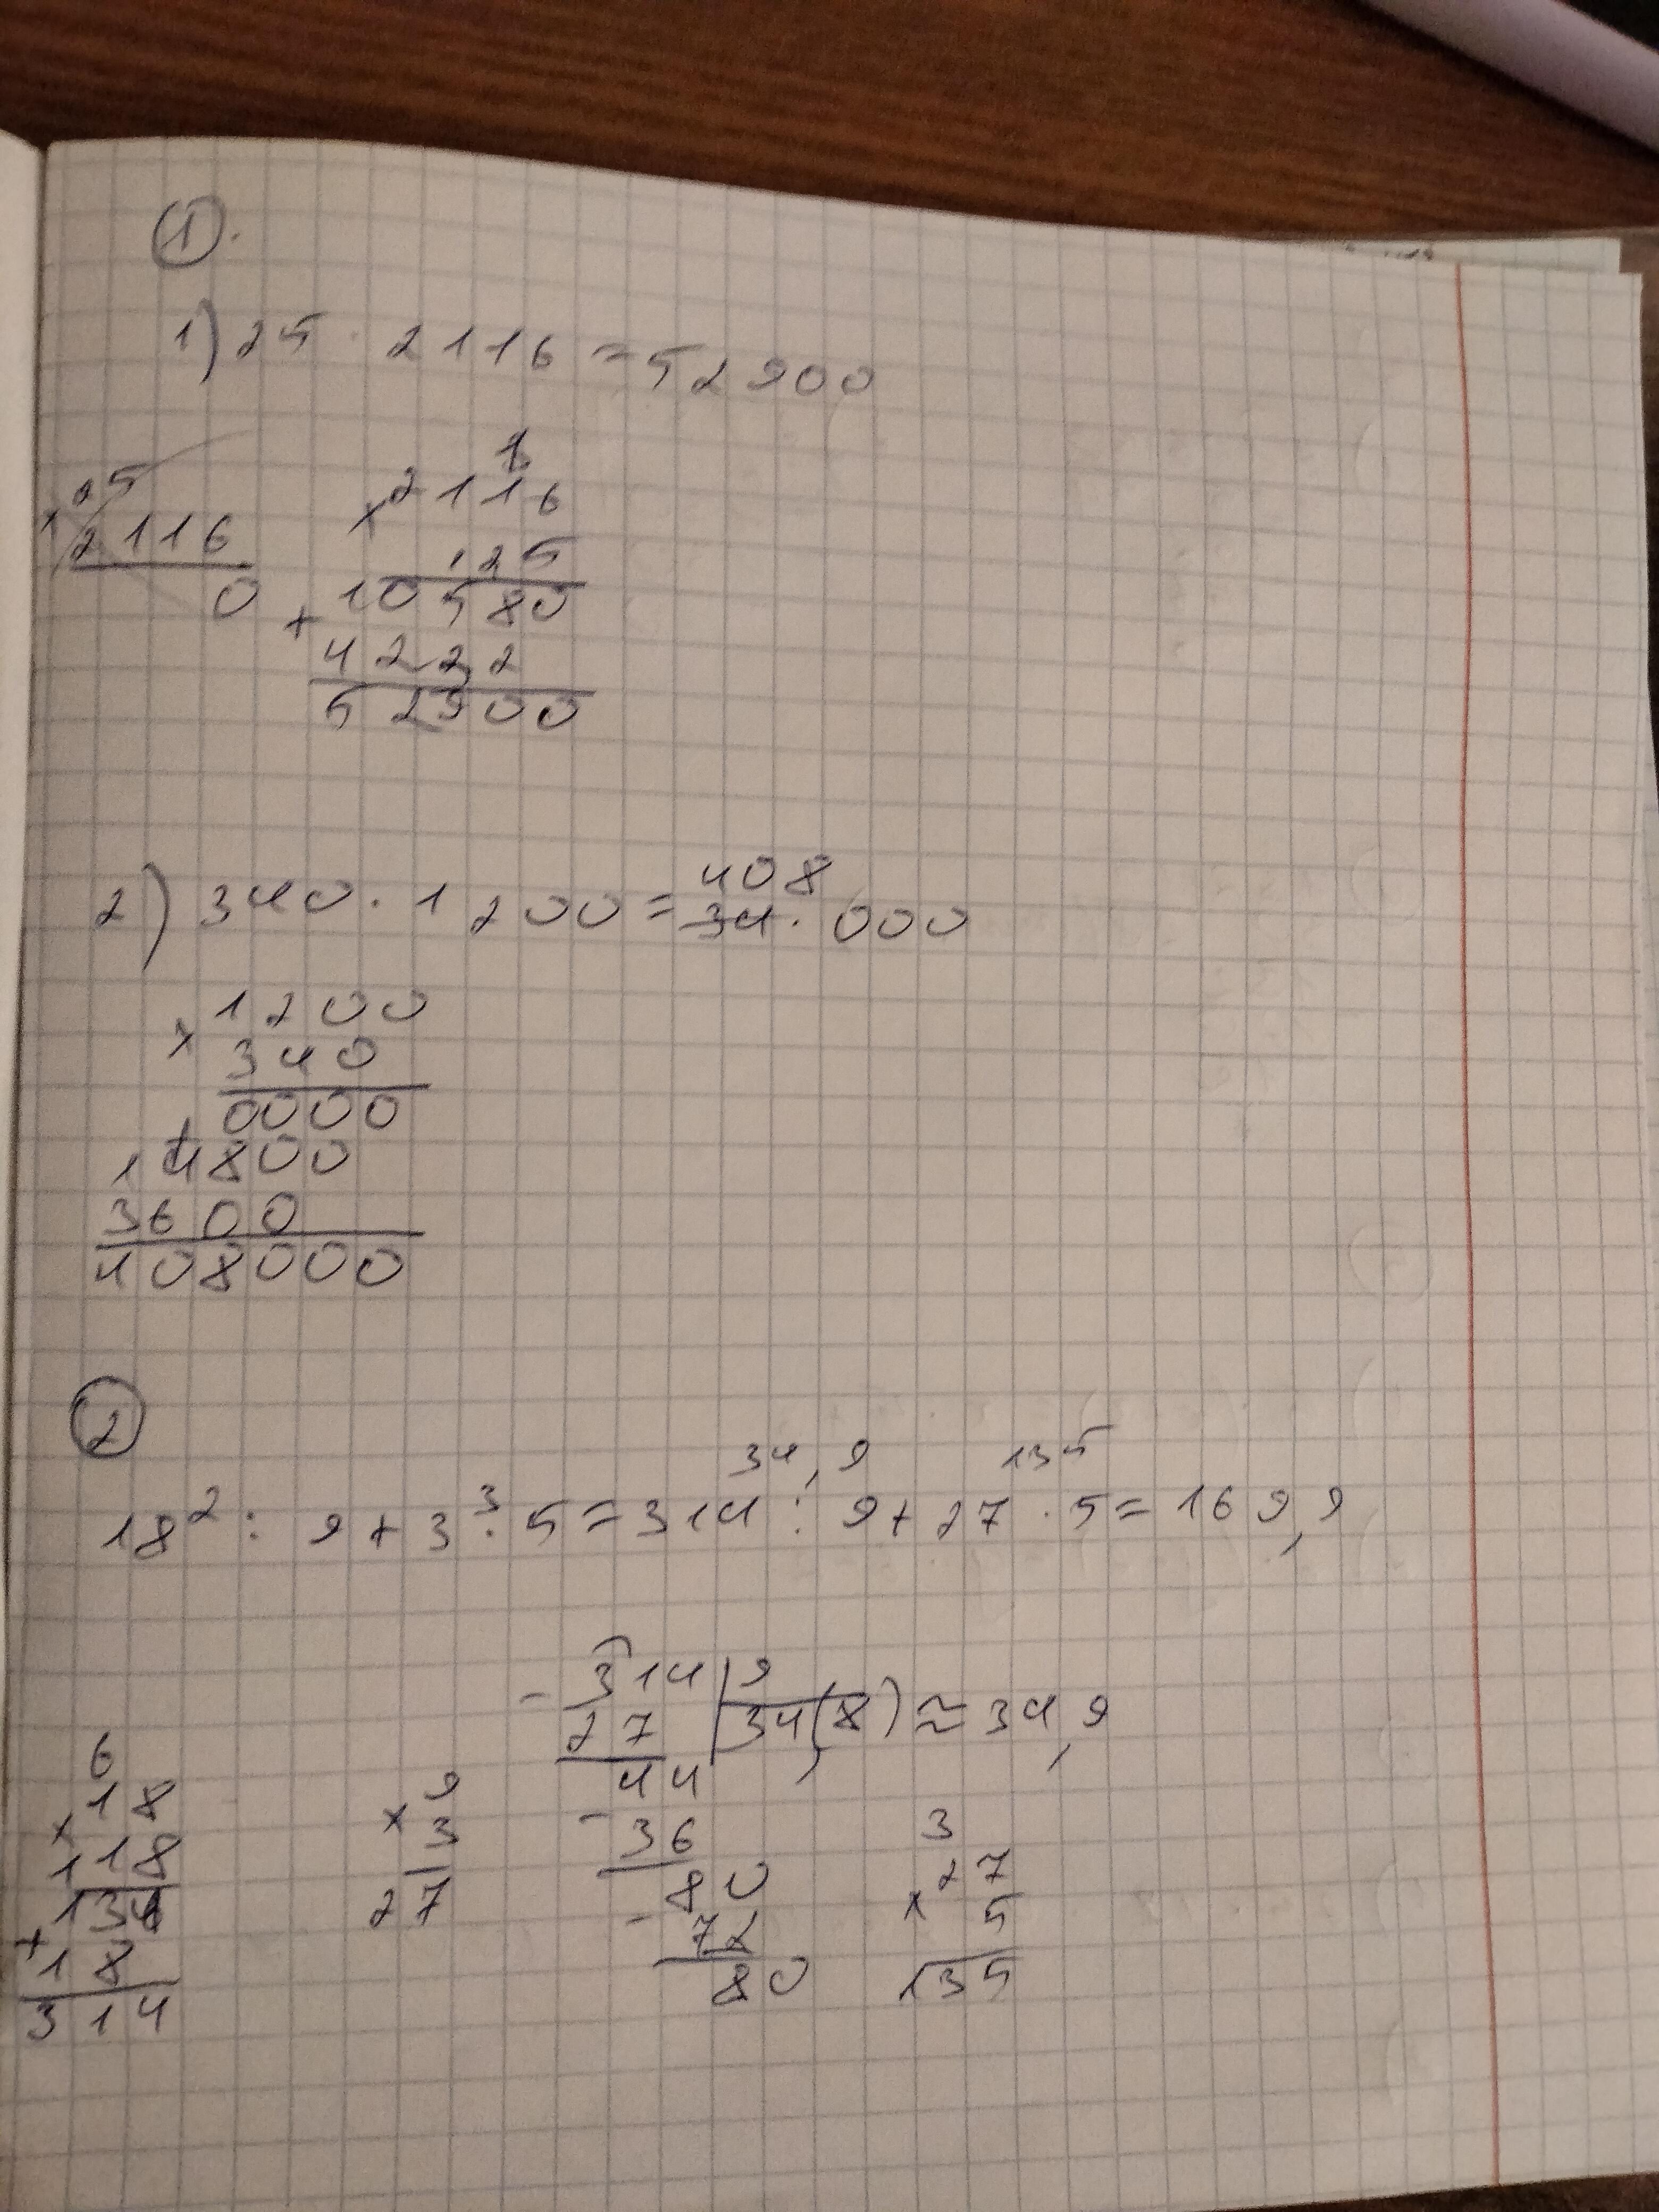 1.
1) 25 · 2116 = 52900
25
× 2116
0
1
2116
× 25
10580
+ 4222
52900
2) 340 · 1200 = 34 · 000
408
1200
× 340
0000
+ 4800
3600
408000
2
34,9 135
18² : 9 + 3³ · 5 = 314 : 9 + 27 · 5 = 169,9
6
18
× 18
134
+ 18
314
9
× 3
27
314 | 9
- 27 | 34,(8) ≈ 34,9
44
- 36
80
- 72
80
3
27
× 5
135